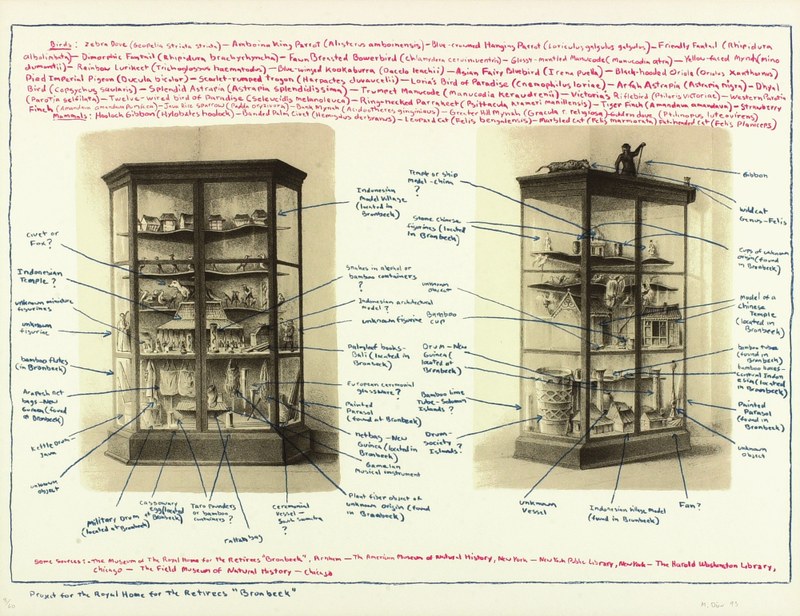 Birds: Zebra Dove (Geopelia striata striata) – Amboina King Parrot (Alisterus amboinensis) – Blue-crowned Hanging Parrot (Loriculus galgulus galgulus) – Friendly Fantail (Rhipidura
albolimbata) – Dimorphic Fantail (Rhipidura brachyrhyncha) – Faun Breasted Bowerbird (Chlamydera cerviniventris) – Glossy-mantled Manucode (Manucodia atra) – Yellow-faced Mynah (Mino
dumontii) – Rainbow Lorikeet (Trichoglossus haematodus) – Blue-winged Kookaburra (Dacelo leachii) – Asian Fairy Bluebird (Irena puella) – Black-hooded Oriole (Oriolus Xanthornus)
Pied Imperial Pigeon (Ducula bicolor) – Scarlet-rumped trogon (Harpactes duvaucelii) – Loria's Bird of Paradise (Cnemophilus loriae) – Arfak Astrapia (Astrapia nigra) – Dhyal
Bird (Copsychus saularis) – Splendid Astrapia (Astrapia splendidissima) – Trumpet Manucode (Manucodia Keraudrenii) – Victoria's Riflebird (Ptiloris Victoriae) – Western Parotia
(Parotia sefilata) – Twelve-wired bird of Paradise (Seleucidis melanoleuca) – Ring-necked Parrakeet (Psittacula krameri manillensis) – Tiger Finch (Amandava amandava) – Strawberry
Finch – Java Rice Sparrow (Padda oryzivora) – Bank Mynah (Acridotheres ginginianus) – Greater Hill Mynah (Gracula r. religiosa) – Golden dove (Ptilinopus luteovirens)
Mammals: Hoolock Gibbon (Hylobates hoolock) – Banded Palm Civet (Hemigalus derbyanus) – Leopard Cat (Felis bengalensis) – Marbled Cat (Felis marmorata) – Flat-headed Cat (Felis Planiceps)
Civet or
Fox?
Indonesian
Temple ?
unknown miniature
figurines
unknown
figurine
bamboo flutes
(in Bronbeek)
Arapesh net
bags – New
Guinea (found
Bronbeek)
Kettledrum –
Java
unknown
object
Military Drum
(located at Bronbeek)
Cassowary
egg (located
Bronbeek)
Taro Pounders
or bamboo
containers ?
rattan bag
Ceremonial
Vessel –
South Sumatra
?
Plant fiber object of
unknown origin (found
in Bronbeek)
Indonesian
Model Village
(located in
Bronbeek)
Snakes in alcohol or
bamboo containers
?
Indonesian architectural
model ?
unknown figurine
Palmleaf books –
Bali (located in
Bronbeek)
European ceremonial
glassware ?
Painted
Parasol
(found at Bronbeek)
Netbag – New
Guinea (located in
Bronbeek)
Gamelan
Musical instrument
Temple or ship
model – China
?
Stone Chinese
figurines (located
in Bronbeek)
unknown
object
Bamboo
cup
Drum – New
Guinea (
located at
Bronbeek)
Bamboo Lime
Tube – Solomon
Islands ?
Drum –
Society ?
Islands –
unknown
Vessel
Indonesian Village Model
(found in Bronbeek)
Fan?
Gibbon
wildcat
Genus – Felis
Cups of unknown
origin (found
in Bronbeek)
Model of a
Chinese
Temple
(located in
Bronbeek)
bamboo tubes
(found in Bronbeek)
bamboo
Central Indon
esia (located
in Bronbeek)
Painted
Parasol
(found in
Bronbeek)
unknown
object
Some Sources: – The Museum of The Royal Home for the Retirees "Bronbeek", Arnhem – The American Museum of Natural History, New York – New York Public Library, New York – The Harold Washington Library,
Chicago – The Field Museum of Natural History – Chicago
Project for the Royal Home for The Retirees "Bronbeek"